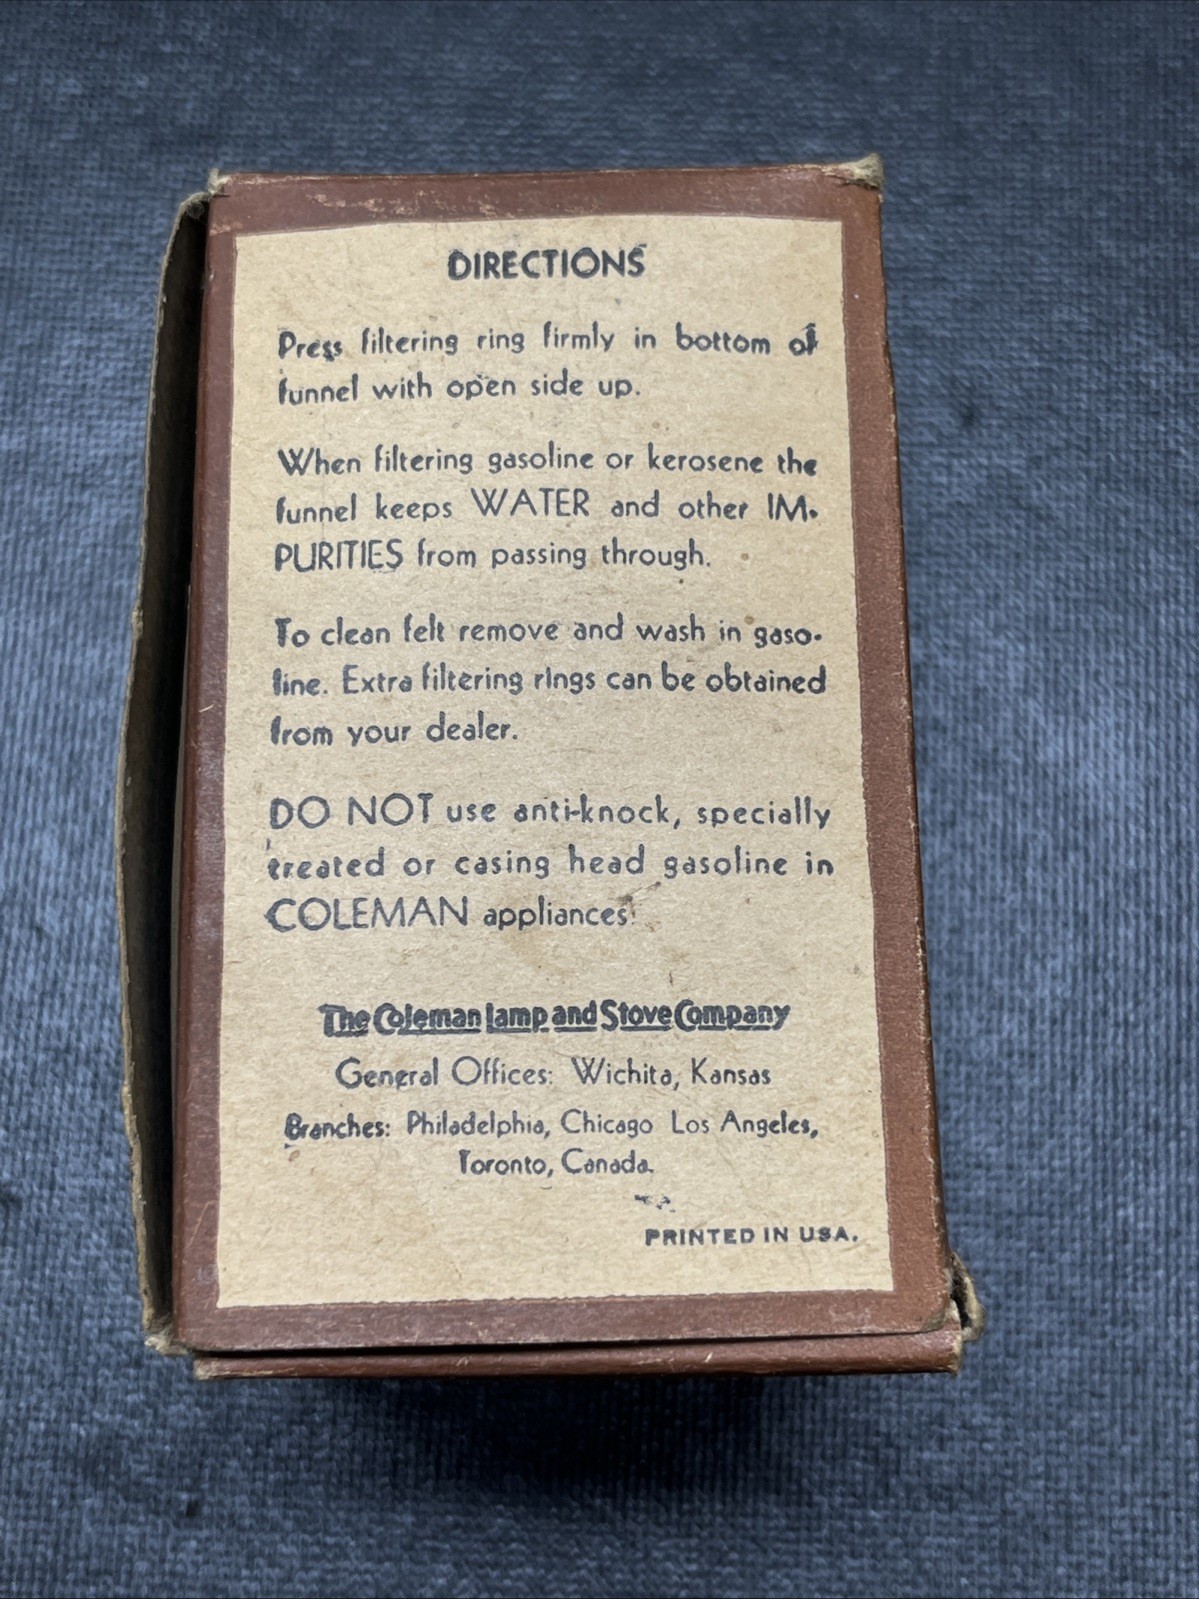 DIRECTIONS
Press filtering ring firmly in bottom of
funnel with open side up.
When filtering gasoline or kerosene the
funnel keeps WATER and other IM-
PURITIES from passing through.
To clean felt remove and wash in gaso-
line. Extra filtering rings can be obtained
from your dealer.
DO NOT use anti-knock, specially
treated or casing head gasoline in
COLEMAN appliances.
The Coleman Lamp and Stove Company
General Offices: Wichita, Kansas
Branches: Philadelphia, Chicago Los Angeles,
Toronto, Canada.
PRINTED IN USA.